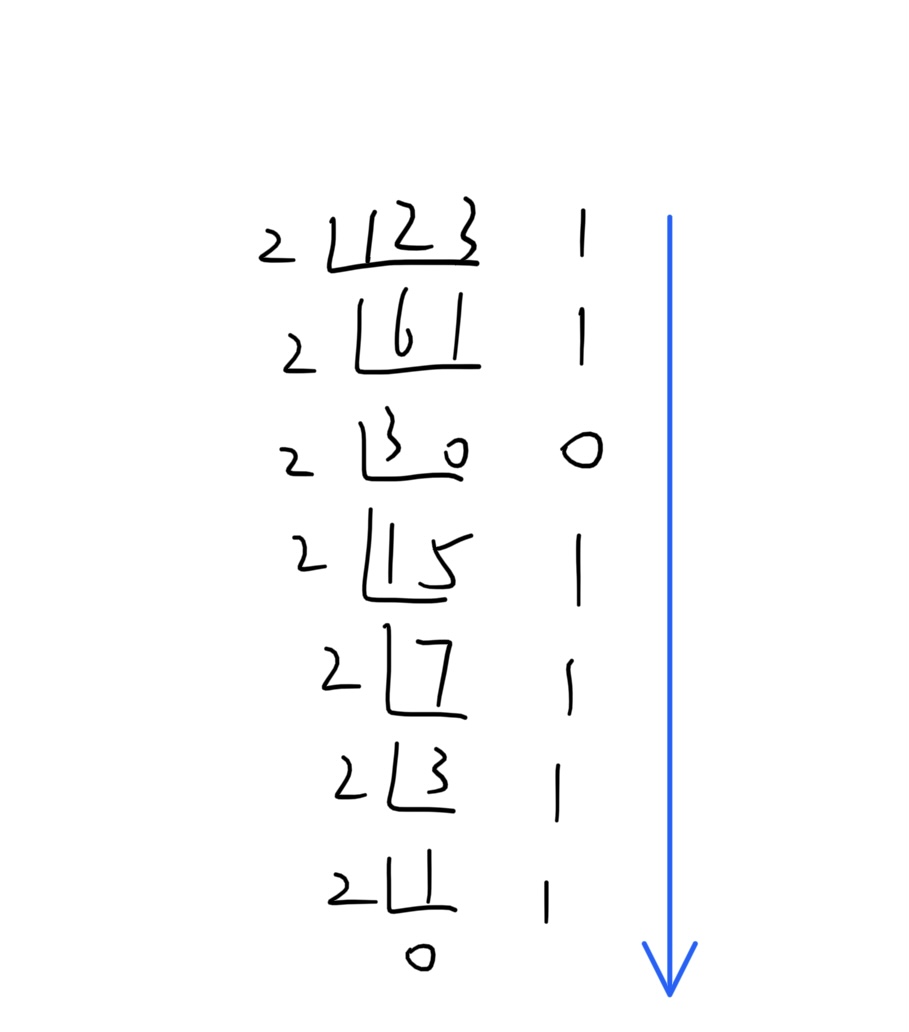 2 123 1
2 61 1
2 30 0
2 15 1
2 7 1
2 3 1
2 1 1
0